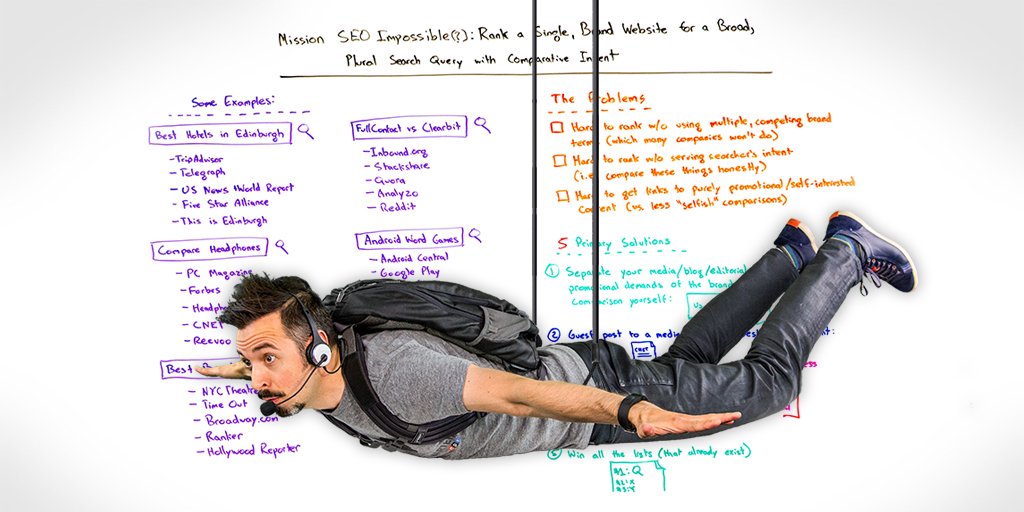 Mission SEO Impossible(?): Rank a Single, Brand Website for a Broad,
Plural Search Query with Comparative Intent
Some Examples:
Best Hotels in Edinburgh
- TripAdvisor
- Telegraph
- US News + World Report
- Five Star Alliance
- This is Edinburgh
Compare Headphones
- PC Magazine
- Forbes
- CNET
- Reevoo
Best
- NYC Theatre
- Time Out
- Broadway.com
- Ranker
- Hollywood Reporter
FullContact vs Clearbit
- Inbound.org
- Stackshare
- Quora
- Analyzo
- Reddit
Android Word Games
- Android Central
- Google Play
The Problems
Hard to rank w/o using multiple, competing brand
terms (which many companies won't do)
Hard to rank w/o serving searcher's intent
(i.e. compare these things honestly)
Hard to get links to purely promotional/self-interested
content (vs. less "selfish" comparisons)
5 Primary Solutions
① Separate your media/blog/editorial
promotional demands of the brand
comparison yourself:
② Guest post to a
CNET
⑤ Win all the lists (that already exist)
#1: Q
#2: X
#3: Y